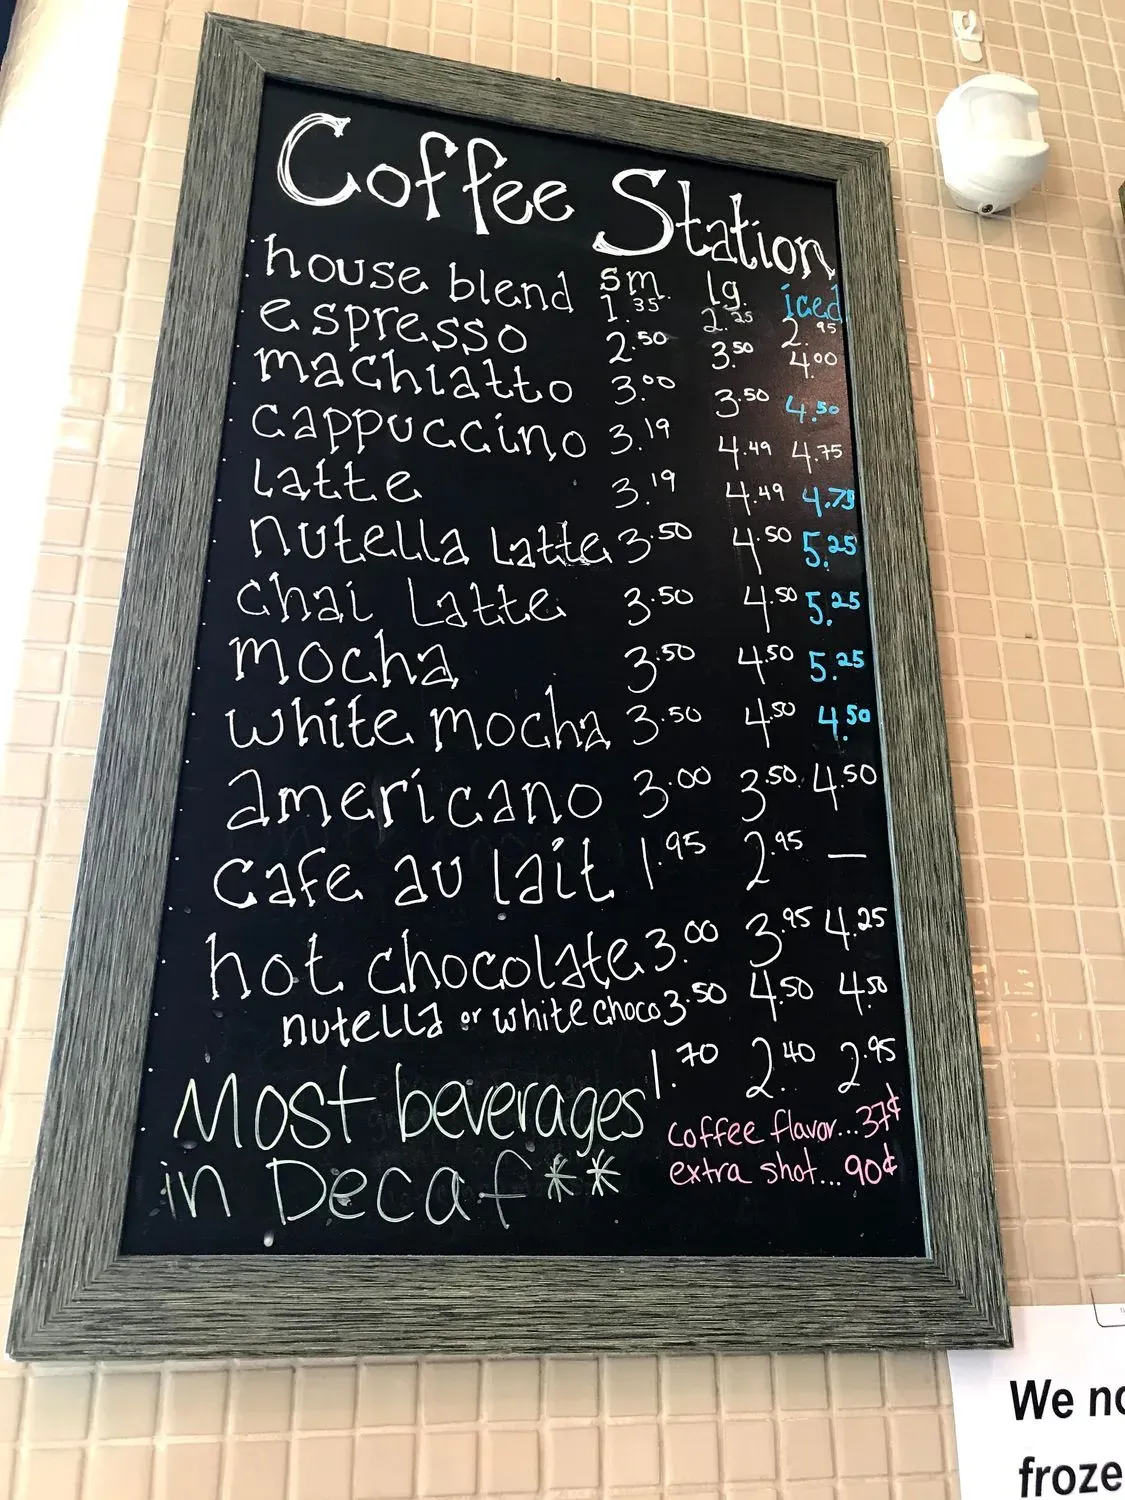 Coffee Station
sm. lg. iced
house blend 1.35 2.25 2.95
espresso 2.50 3.50 4.00
machiatto 3.00 3.50 4.50
cappuccino 3.19 4.49 4.75
Latte 3.19 4.49 4.75
nutella Latte 3.50 4.50 5.25
chai Latte 3.50 4.50 5.25
mocha 3.50 4.50 5.25
white mocha 3.50 4.50 4.50
americano 3.00 3.50 4.50
cafe au lait 1.95 2.95 —
hot chocolate 3.00 3.95 4.25
nutella or white choco 3.50 4.50 4.50
1.70 2.40 2.95
Most beverages
in Decaf**
coffee flavor...37¢
extra shot...90¢
We no
froze